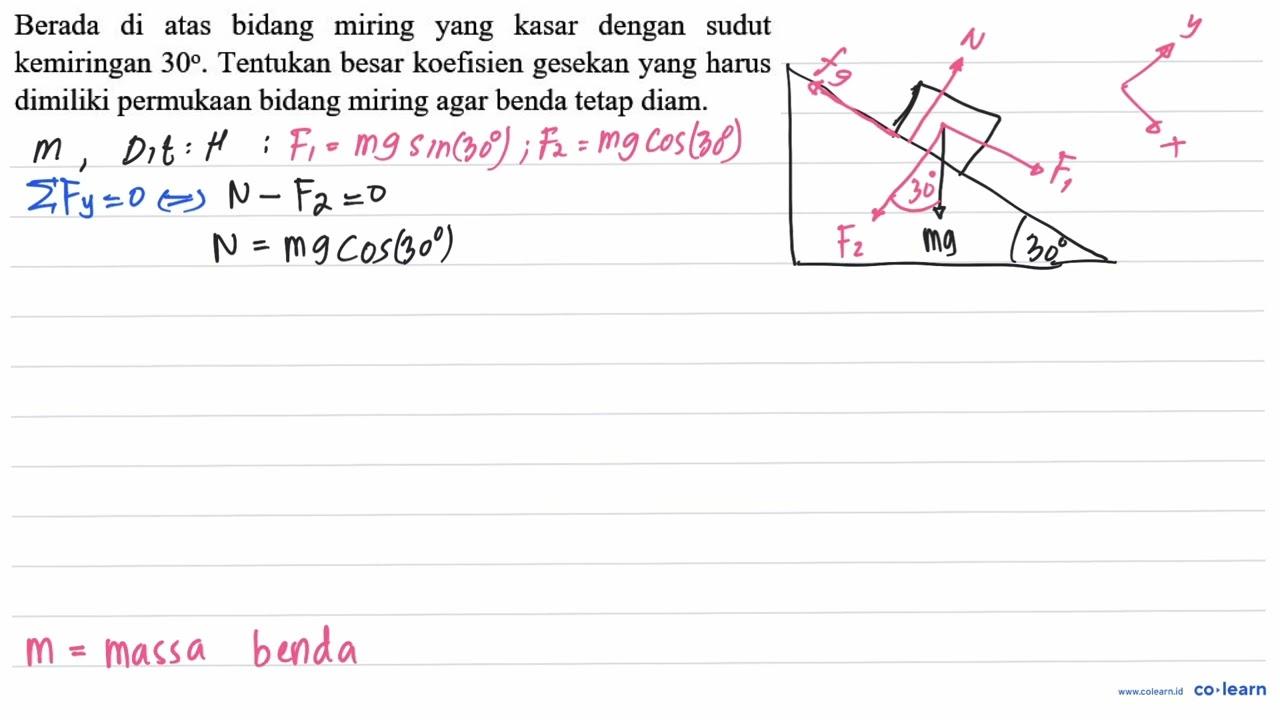 Berada di atas bidang miring yang kasar dengan sudut
kemiringan 30°. Tentukan besar koefisien gesekan yang harus
dimiliki permukaan bidang miring agar benda tetap diam.
m, Dit : μ ; F₁ = mg sin(30°) ; F₂ = mg cos(30°)
ΣFy = 0 ⇔ N − F₂ = 0
N = mg cos(30°)
fg
N
y
+
F₁
30°
F₂
mg
30°
m = massa benda
www.colearn.id co·learn